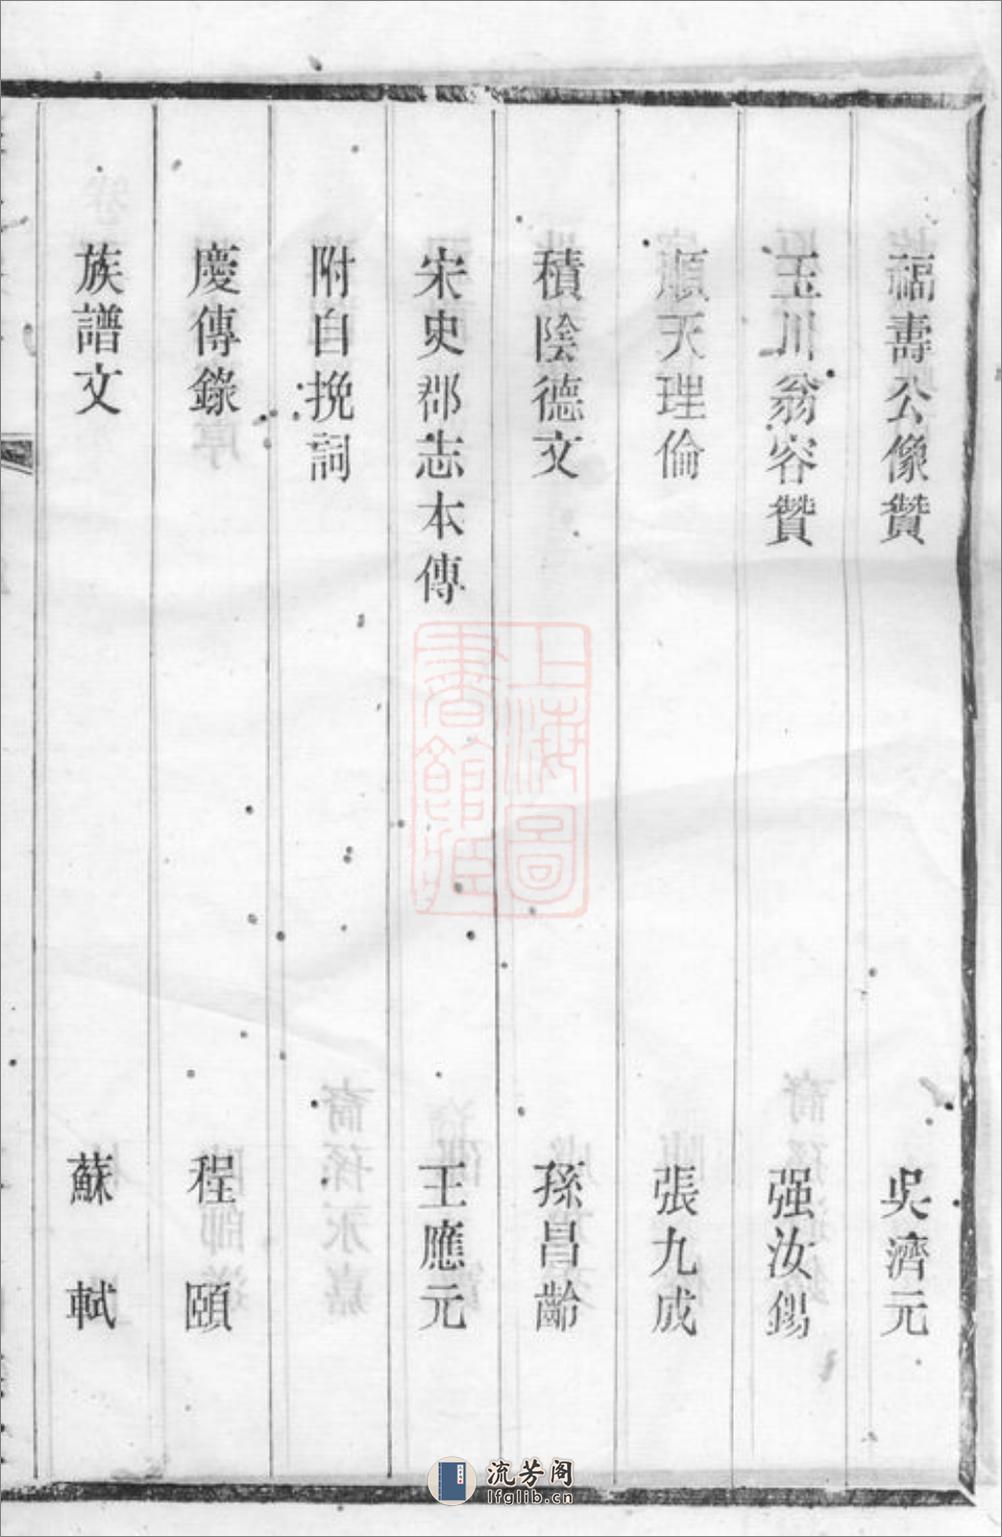 福壽公像贊 吳濟元
玉川翁容贊 强汝錫
順天理倫 張九成
積陰德文 孫昌齡
宋史郡志本傳 王應元
附自挽詞
慶傳錄 程頤
族譜文 蘇軾
上海圖書館藏
流芳阁
lfglib.cn